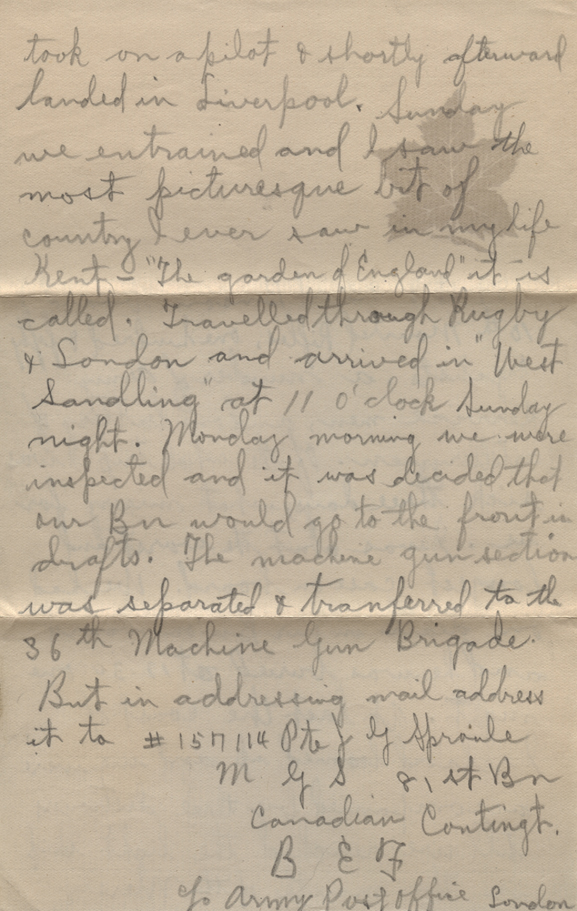 took on a pilot & shortly afterward
landed in Liverpool. Sunday
we entrained and I saw the
most picturesque bit of
country I ever saw in my life
Kent - "The garden of England" it is
called. Travelled through Rugby
& London and arrived in "West
Sandling" at 11 o'clock Sunday
night. Monday morning we were
inspected and it was decided that
our Bn would go to the front in
drafts. The machine gun section
was separated & tranferred to the
36th Machine Gun Brigade.
But in addressing mail address
it to #157114 Pte J G Sproule
M G S 81st Bn
Canadian Contingt.
B E F
c/o Army Post Office London